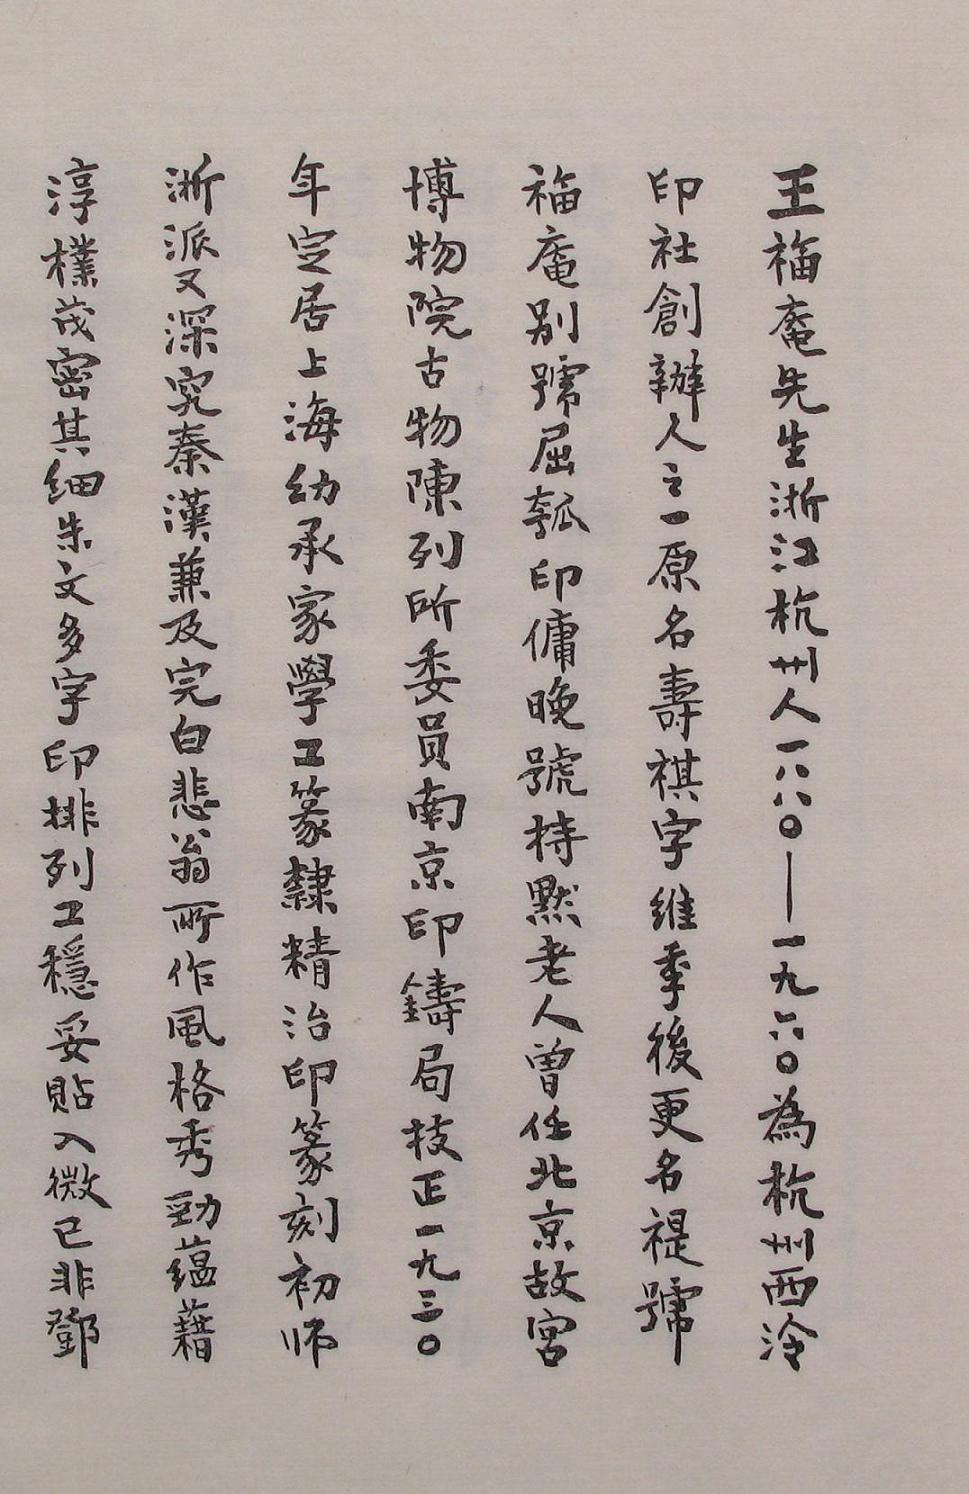 王福庵先生浙江杭州人一八八〇——一九六〇為杭州西泠
印社創辦人之一原名壽祺字維季後更名禔號
福庵別號屈瓠印傭晚號持默老人曾任北京故宮
博物院古物陳列所委員南京印鑄局技正一九三〇
年定居上海幼承家學工篆隸精治印篆刻初師
浙派又深究秦漢兼及完白悲翁所作風格秀勁蘊藉
淳樸茂密其細朱文多字印排列工穩妥貼入微已非鄧